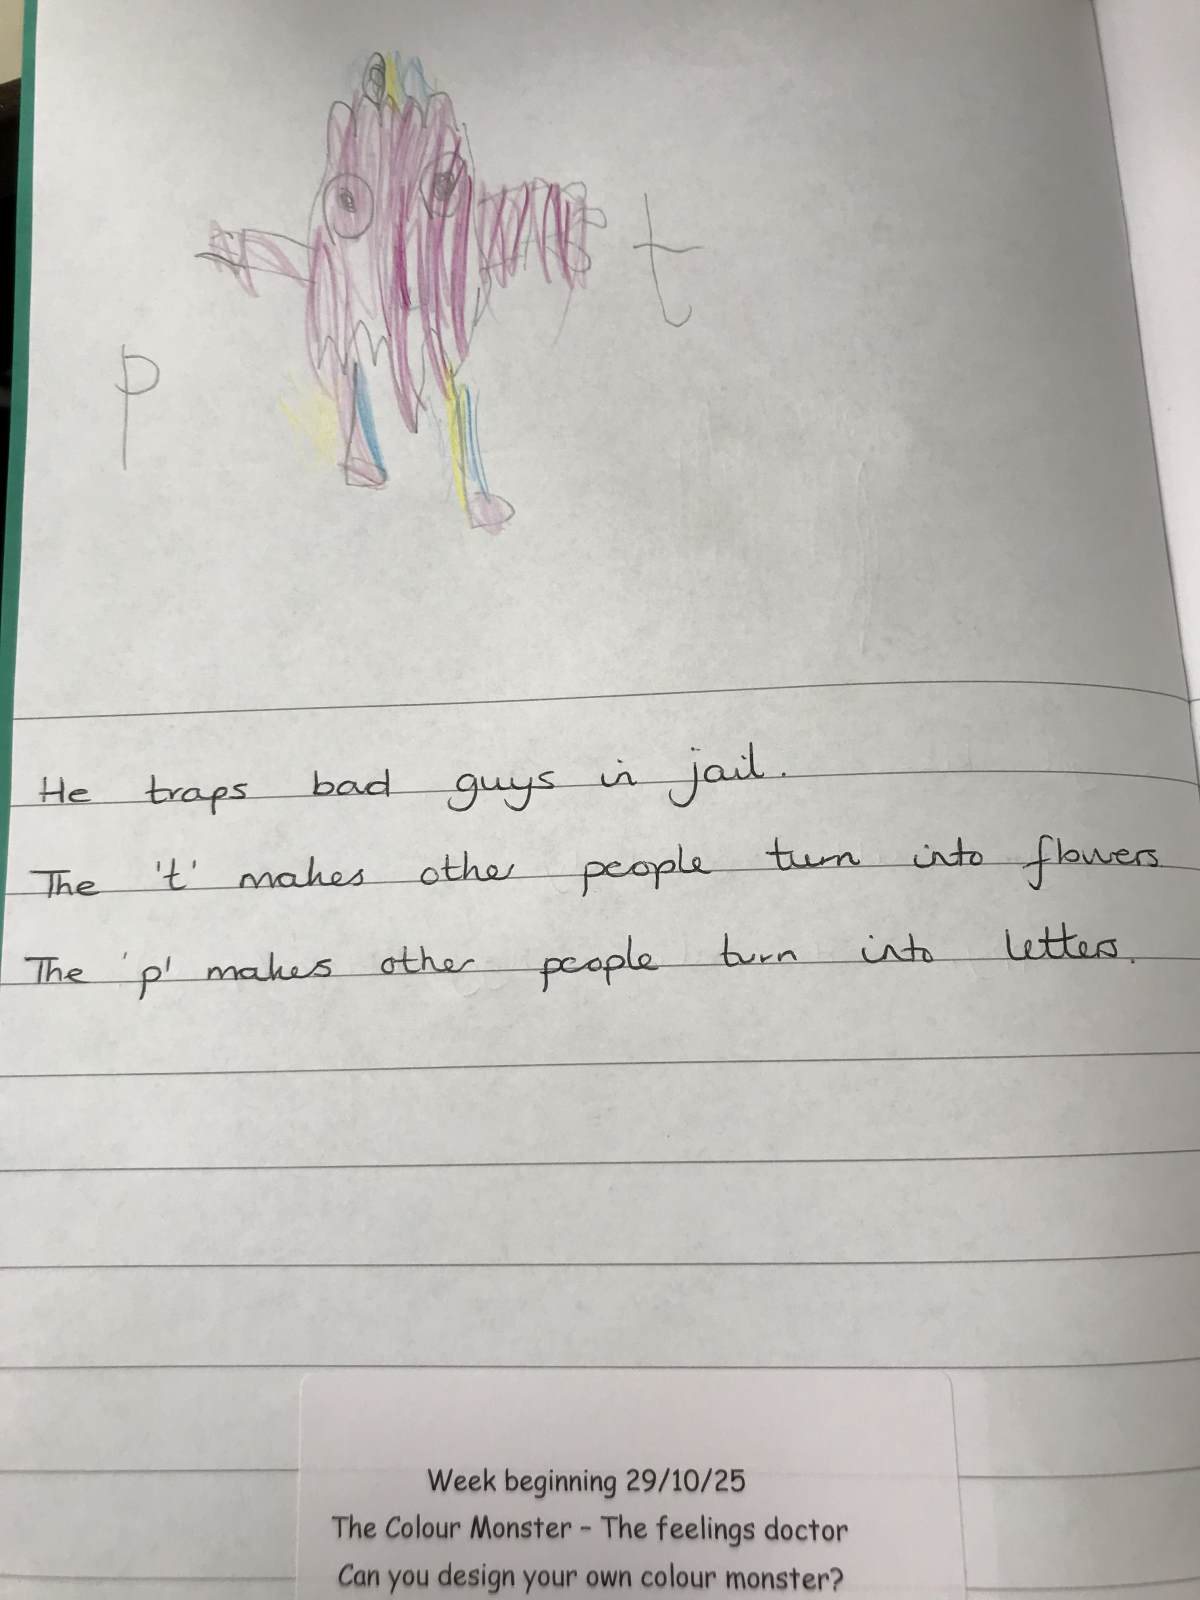 t
p
He traps bad guys in jail.
The 't' makes other people turn into flowers
The 'p' makes other people turn into letters.
Week beginning 29/10/25
The Colour Monster - The feelings doctor
Can you design your own colour monster?